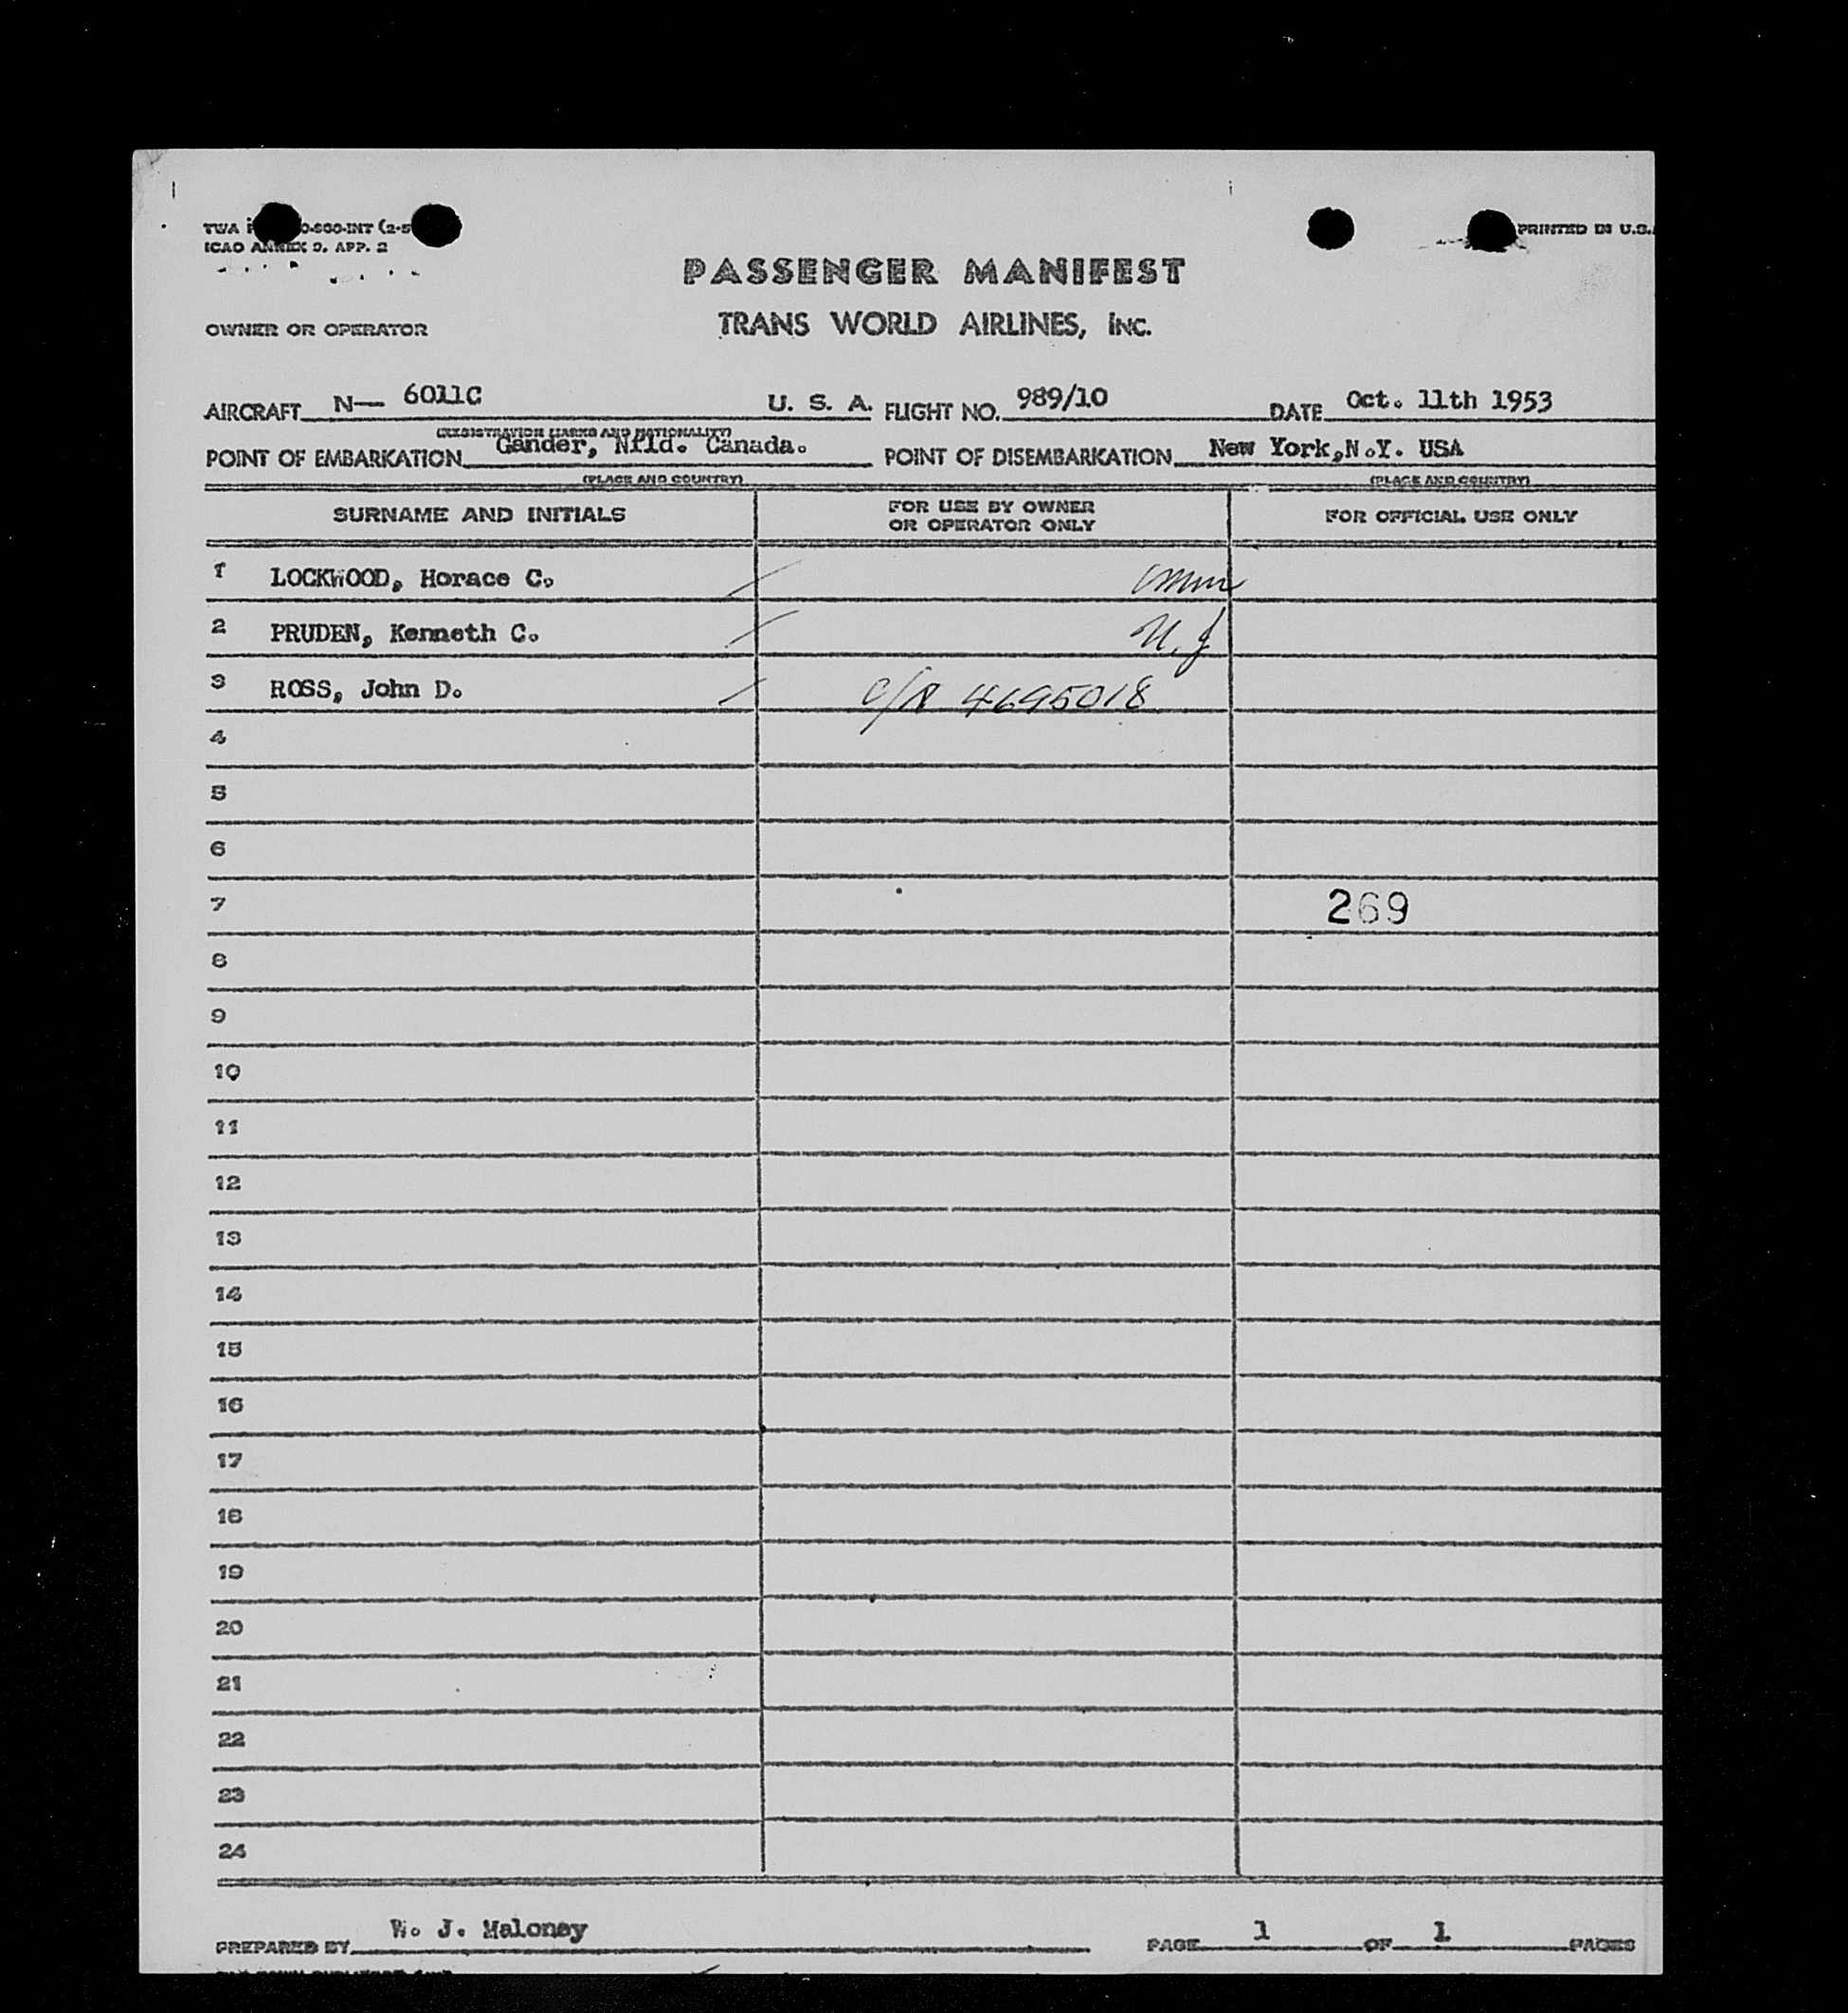 TWA 0-800-INT (2-5
ICAO ANNEX 9, APP. 2
PRINTED IN U.S.
PASSENGER MANIFEST
OWNER OR OPERATOR
TRANS WORLD AIRLINES, INC.
AIRCRAFT N— 6011C U. S. A. FLIGHT NO. 989/10 DATE Oct. 11th 1953
(REGISTRATION MARKS AND NATIONALITY)
POINT OF EMBARKATION Gander, Nfld. Canada. POINT OF DISEMBARKATION New York,N.Y. USA
(PLACE AND COUNTRY) (PLACE AND COUNTRY)
SURNAME AND INITIALS FOR USE BY OWNER OR OPERATOR ONLY FOR OFFICIAL USE ONLY
1 LOCKWOOD, Horace C.
2 PRUDEN, Kenneth C. N.J
3 ROSS, John D. C/R 4695018
4
5
6
7 269
8
9
10
11
12
13
14
15
16
17
18
19
20
21
22
23
24
PREPARED BY W. J. Maloney PAGE 1 OF 1 PAGES